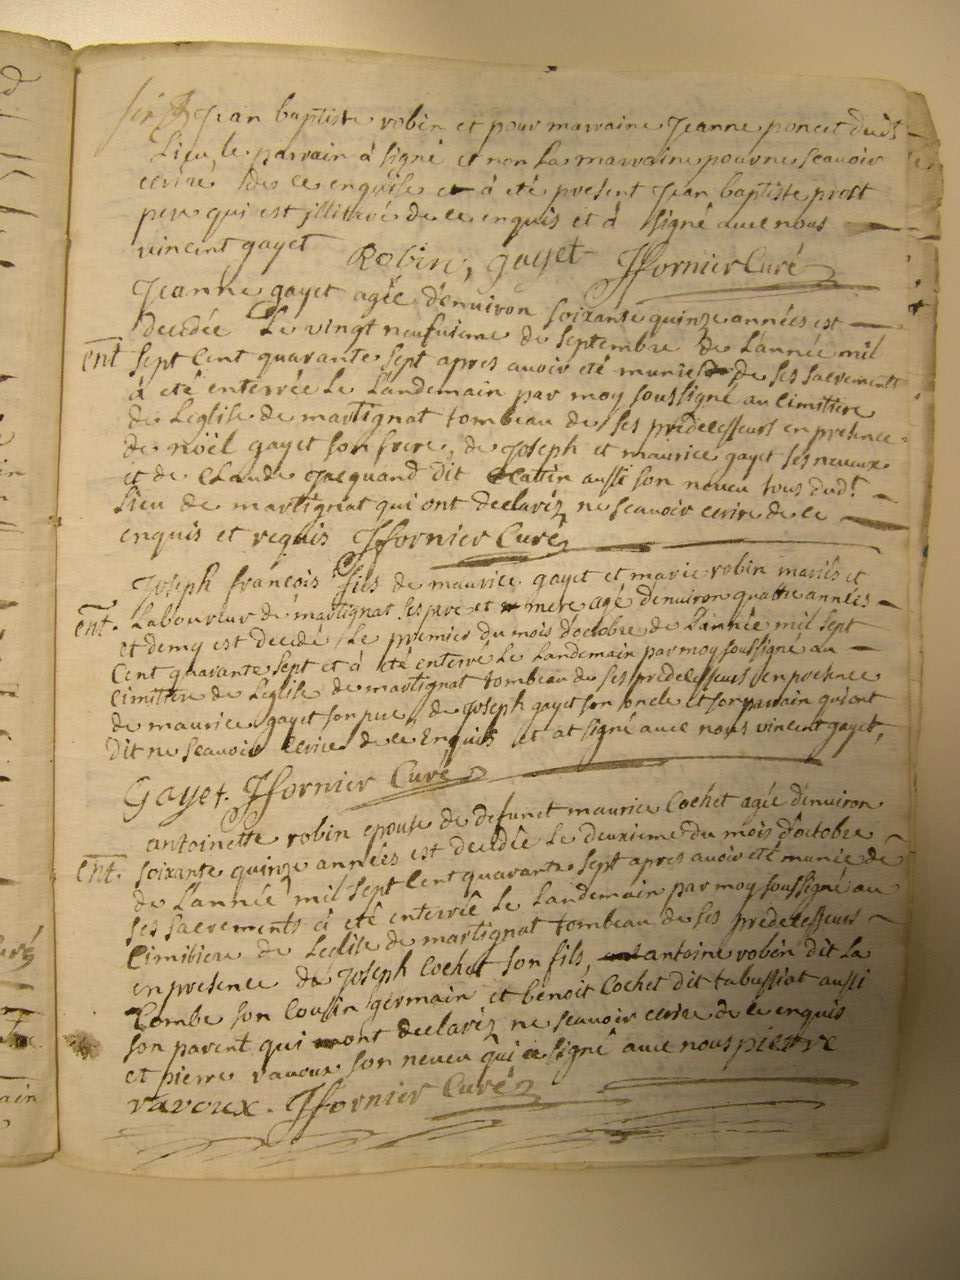 Jean baptiste robin et pour marraine Jeanne poncet dudt
Lieu, le parrain à signé et non la marraine pour ne scavoir
ecrire de ce enquise et à été present Jean baptiste prost
pere qui est jllitteré de ce enquis et à signé avec nous
vincent gayet Robin, gayet Jffornier Curé
Jeanne gayet agée d'environ soixante quinze années est
decedée Le vingt neufuieme de septembre de L'année mil
Ent sept Cent quarante sept apres avoir été munie de ses sacrements
à eté enterrée Le Landemain par moy soussigné au Cimitiere
de L'eglise de martignat tombeau de ses predecesseurs en presence
de noël gayet son frere, de Joseph et maurice gayet ses neveux
et de Claude Jacquand dit Cattin aussi son neveu tous dudt
Lieu de martignat qui ont declarez ne scavoir ecrire de ce
enquis et requis Jffornier Curé
Joseph françois fils de maurice gayet et marie robin mariés et
Ent. Laboureur de martignat ses pere et mere agé d'environ quattre années
et demy est decedé Le premier du mois d'octobre de L'année mil sept
Cent quarante sept et à été enterré Le Landemain par moy soussigné au
Cimitiere de L'eglise de martignat tombeau de ses predecesseurs en presence
de maurice gayet son pere, de Joseph gayet son oncle et son parrain qui ont
Dit ne scavoir ecrire de ce Enquis et at signé avec nous vincent gayet,
Gayet. Jffornier Curé
antoinette robin epouse de defunct maurice Cochet agée d'environ
Ent. soixante quinze années est decedée Le deuxieme du mois d'octobre
de L'année mil sept Cent quarante sept apres avoir eté munie de
ses sacrements à eté enterrée Le Landemain par moy soussigné au
Cimitiere de L'eglise de martignat tombeau de ses predecesseurs
en presence de Joseph Cochet son fils, antoine robin dit La
Combe son Coussin germain et benoit Cochet dit tabussiat aussi
son parent qui ont declarez ne scavoir ecrire de ce enquis
et pierre ravoux son neveu qui a signé avec nous pierre
ravoux. Jffornier Curé